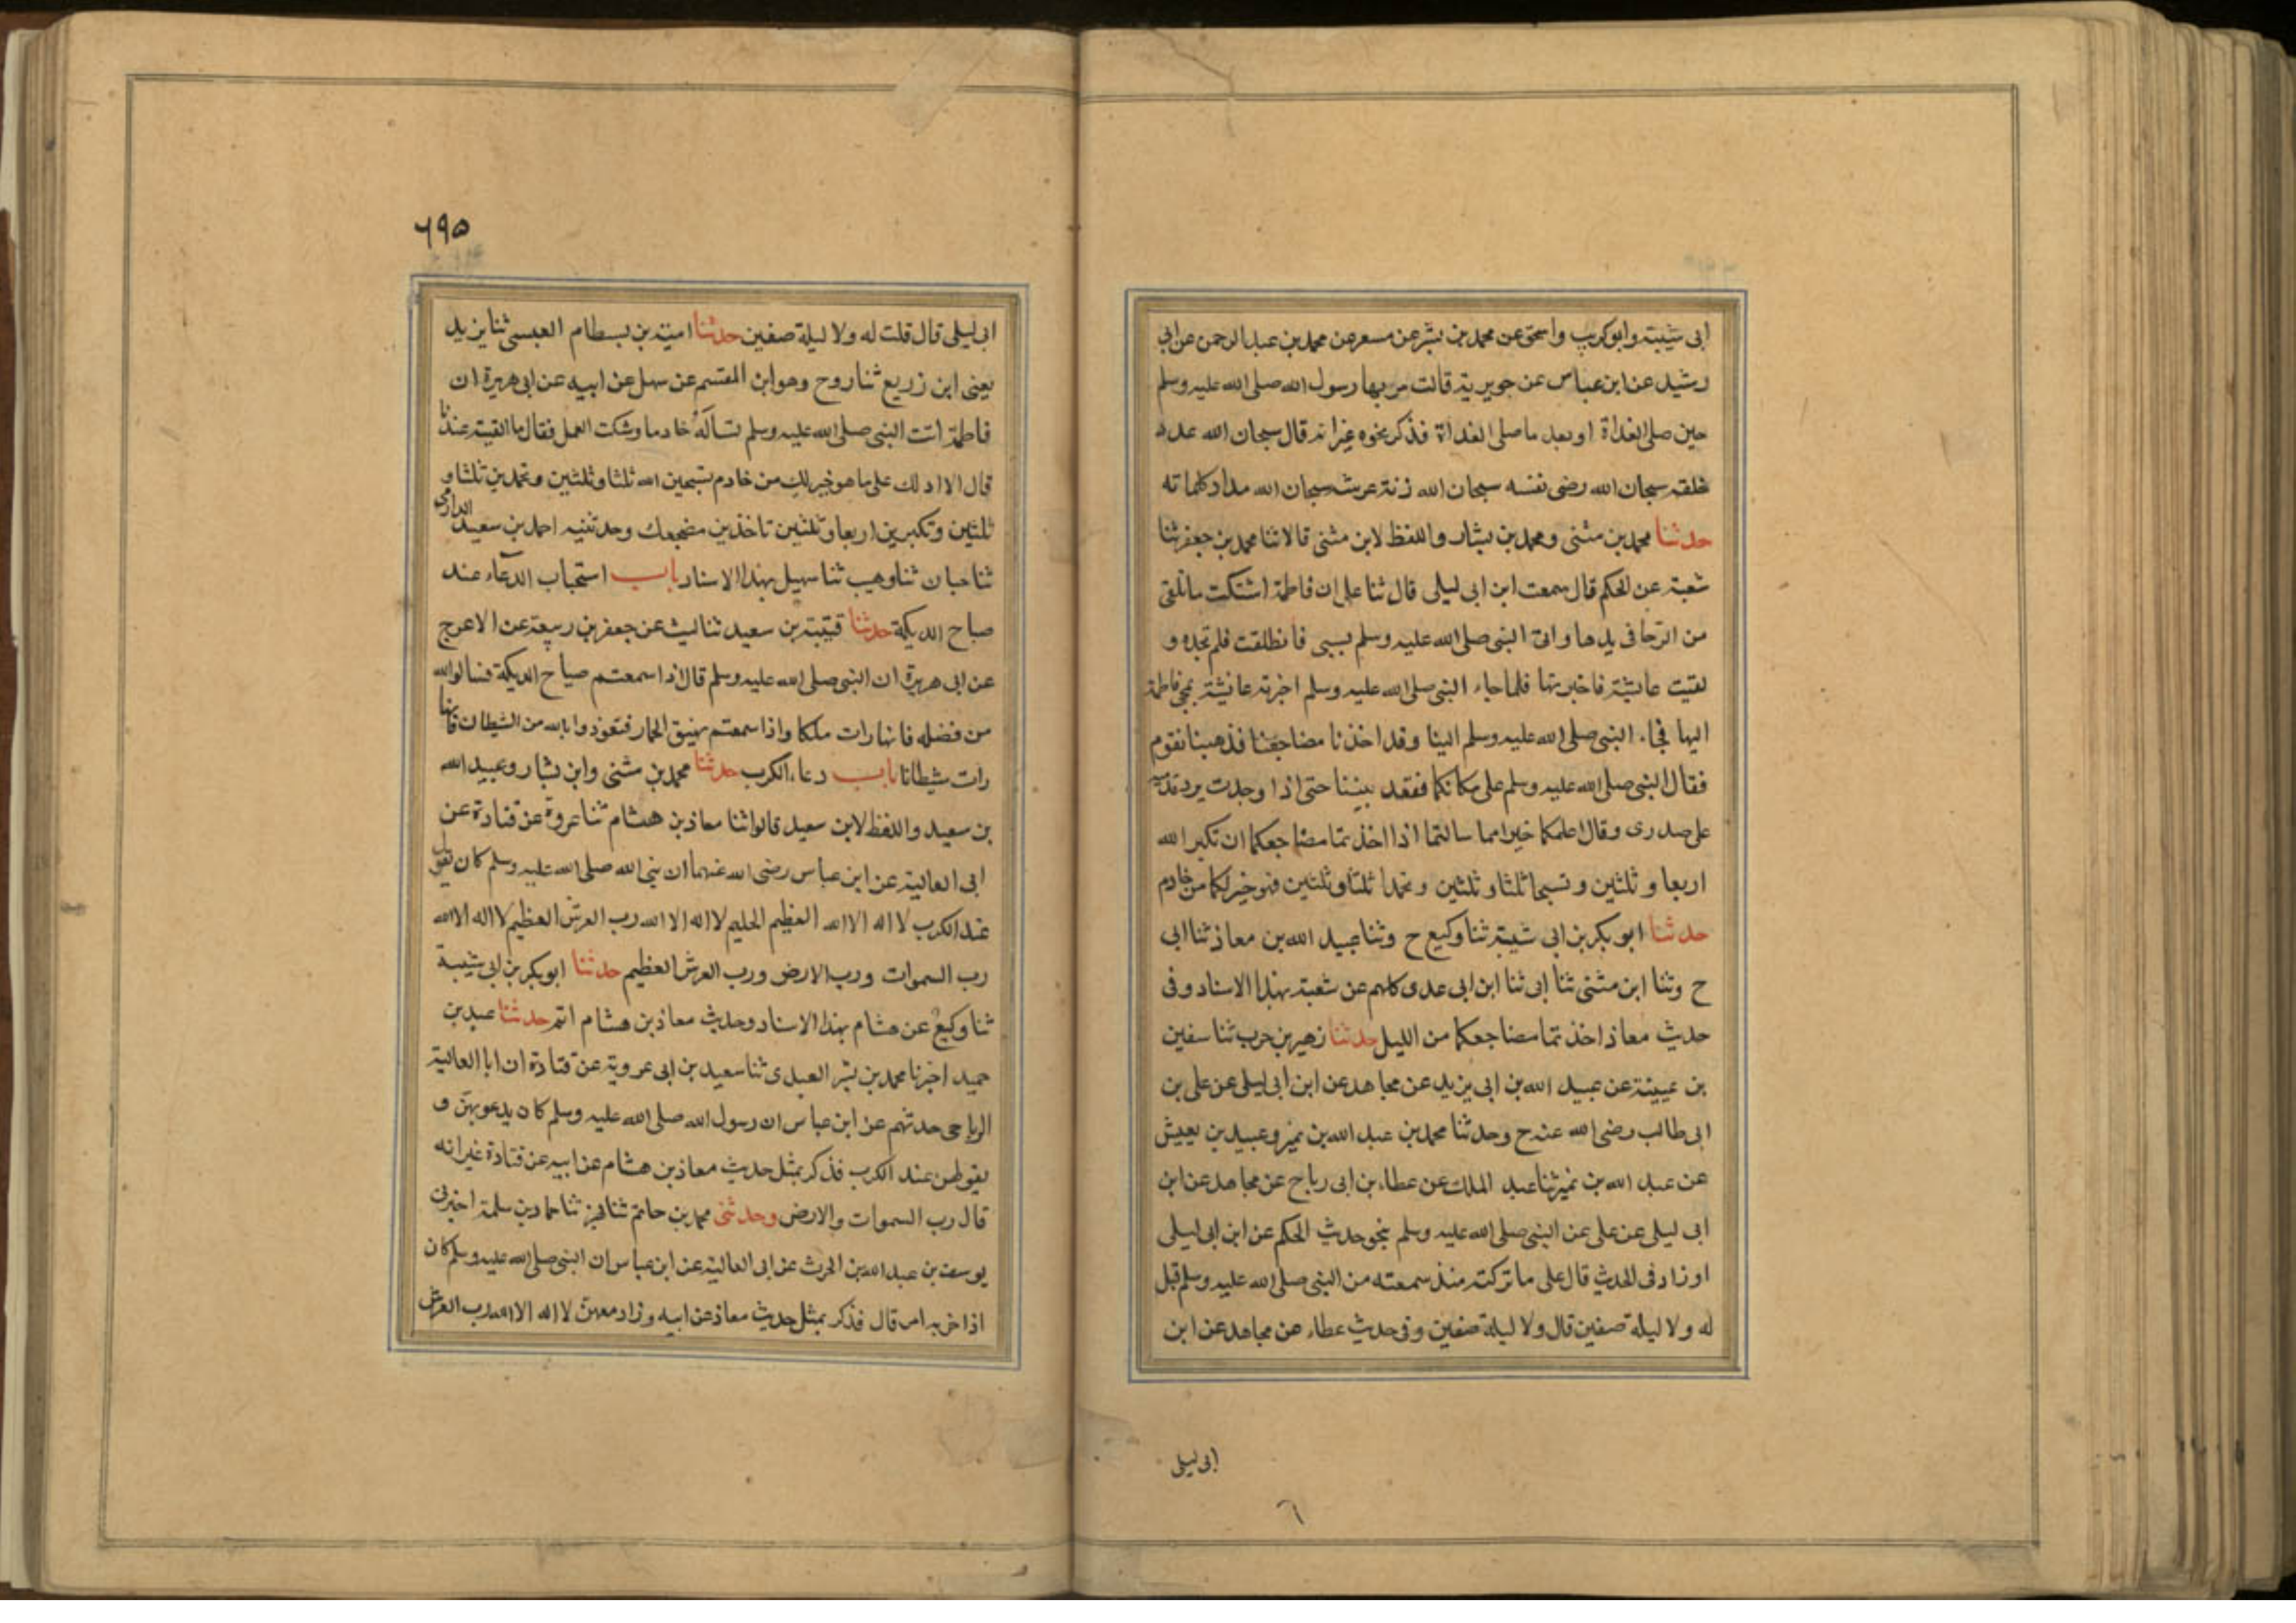 ابى شيبة وابو كريب واسحق عن محمد بن بشر عن مسعر عن محمد بن عبد الرحمن عن ابى
رشيد عن ابن عباس عن جويرية قالت مر بها رسول الله صلى الله عليه وسلم
حين صلى الغداة او بعد ما صلى الغداة فذكر نحوه غير انه قال سبحان الله عدد
خلقه سبحان الله رضى نفسه سبحان الله زنة عرشه سبحان الله مداد كلماته
حدثنا محمد بن مثنى ومحمد بن بشار واللفظ لابن مثنى قالا ثنا محمد بن جعفر ثنا
شعبة عن الحكم قال سمعت ابن ابى ليلى قال ثنا على ان فاطمة اشتكت ما تلقى
من الرحا فى يدها واتى النبى صلى الله عليه وسلم بسبى فانطلقت فلم تجده و
لقيت عايشة فاخبرتها فلما جاء النبى صلى الله عليه وسلم اخبرته عائشة بمجى فاطمة
اليها فجاء النبى صلى الله عليه وسلم الينا وقد اخذنا مضاجعنا فذهبنا نقوم
فقال النبى صلى الله عليه وسلم على مكانكما فقعد بيننا حتى اذا وجدت برد قدمه
على صدرى وقال اعلمكما خيرا مما سالتما اذا اخذتما مضاجعكما ان تكبر الله
اربعا وثلثين وتسبحا ثلثا وثلثين وتحمدا ثلثا وثلثين فهو خير لكما من خادم
حدثنا ابو بكر بن ابى شيبة ثنا وكيع ح وثنا عبيد الله بن معاذ ثنا ابى
ح وثنا ابن مثنى ثنا ابى ثنا ابن ابى عدى كلهم عن شعبة بهذا الاسناد وفى
حديث معاذ اخذتما مضاجعكما من الليل حدثنا زهير بن حرب ثنا سفين
بن عيينة عن عبيد الله بن ابى يزيد عن مجاهد عن ابن ابى ليلى عن على بن
ابى طالب رضى الله عنه ح وحدثنا محمد بن عبد الله بن نمير وعبيد بن يعيش
عن عبد الله بن نمير ثنا عبد الملك عن عطاء بن ابى رباح عن مجاهد عن ابن
ابى ليلى عن على عن النبى صلى الله عليه وسلم بنحو حديث الحكم عن ابن ابى ليلى
اوزاد فى الحديث قال على ما تركته منذ سمعته من النبى صلى الله عليه وسلم قيل
له ولا ليلة صفين قال ولا ليلة صفين وفى حديث عطاء عن مجاهد عن ابن
ابى ليلى
٦
٦٩٥
ابى ليلى قال قلت له ولا ليلة صفين حدثنا امية بن بسطام العبسى ثنا يزيد
يعنى ابن زريع ثنا روح وهو ابن القسم عن سهل عن ابيه عن ابى هريرة ان
فاطمة اتت النبى صلى الله عليه وسلم تسأله خادما وشكت العمل فقال ما الفيته عندنا
قال الا ادلك على ما هو خير لك من خادم تسبحين الله ثلثا وثلثين وتحمدين ثلثا و
ثلثين وتكبرين اربعا وثلثين تاخذين مضجعك وحدثنيه احمد بن سعيد الدارمى
ثنا حبان ثنا وهيب ثنا سهيل بهذا الاسناد باب استحباب الدعاء عند
صباح الديكة حدثنا قتيبة بن سعيد ثنا ليث عن جعفر بن ربيعة عن الاعرج
عن ابى هريرة ان النبى صلى الله عليه وسلم قال اذا سمعتم صياح الديكة فسالوا الله
من فضله فانها رات ملكا واذا سمعتم نهيق الحمار فتعوذوا بالله من الشيطان فانها
رات شيطانا باب دعاء الكرب حدثنا محمد بن مثنى وابن بشار وعبيد الله
بن سعيد واللفظ لابن سعيد قالوا ثنا معاذ بن هشام ثنا عروة عن قتادة عن
ابى العالية عن ابن عباس رضى الله عنهما ان نبى الله صلى الله عليه وسلم كان يقول
عند الكرب لا اله الا الله العظيم الحليم لا اله الا الله رب العرش العظيم لا اله الا الله
رب السموات ورب الارض ورب العرش العظيم حدثنا ابو بكر بن ابى شيبة
ثنا وكيع عن هشام بهذا الاسناد وحديث معاذ بن هشام اتم حدثنا عبد بن
حميد اخبرنا محمد بن بشر العبدى ثنا سعيد بن ابى عروبة عن قتادة ان ابا العالية
الرياحى حدثهم عن ابن عباس ان رسول الله صلى الله عليه وسلم كان يدعو بهن و
يقولهن عند الكرب فذكر بمثل حديث معاذ بن هشام عن ابيه عن قتادة غير انه
قال رب السموات والارض وحدثنى محمد بن حاتم ثنا بهز ثنا حماد بن سلمة اخبرنى
يوسف بن عبد الله بن الحرث عن ابى العالية عن ابن عباس ان النبى صلى الله عليه وسلم كان
اذا حزبه امر قال فذكر بمثل حديث معاذ عن ابيه وزاد معهن لا اله الا الله رب العرش